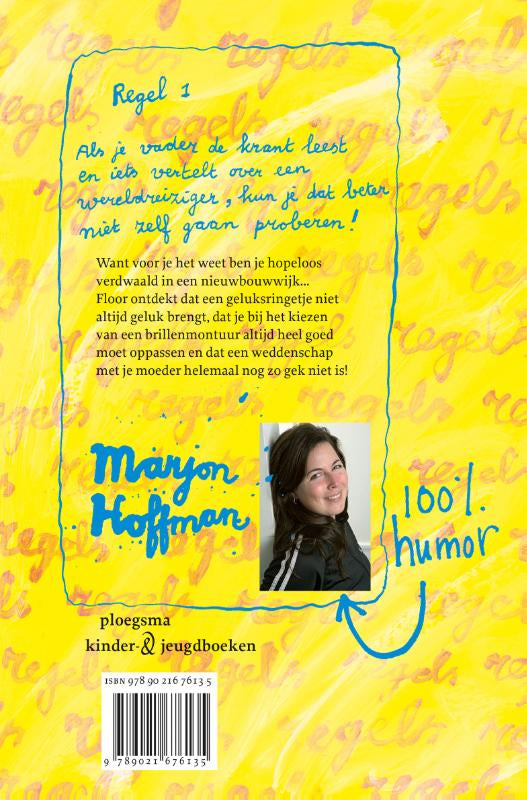 Regel 1
Als je vader de krant leest
en iets vertelt over een
wereldreiziger, kun je dat beter
niet zelf gaan proberen!
Want voor je het weet ben je hopeloos
verdwaald in een nieuwbouwwijk...
Floor ontdekt dat een geluksringetje niet
altijd geluk brengt, dat je bij het kiezen
van een brillenmontuur altijd heel goed
moet oppassen en dat een weddenschap
met je moeder helemaal nog zo gek niet is!
Marjon
Hoffman
100%
humor
ploegsma
kinder- & jeugdboeken
ISBN 978 90 216 7613 5
9 789021 676135